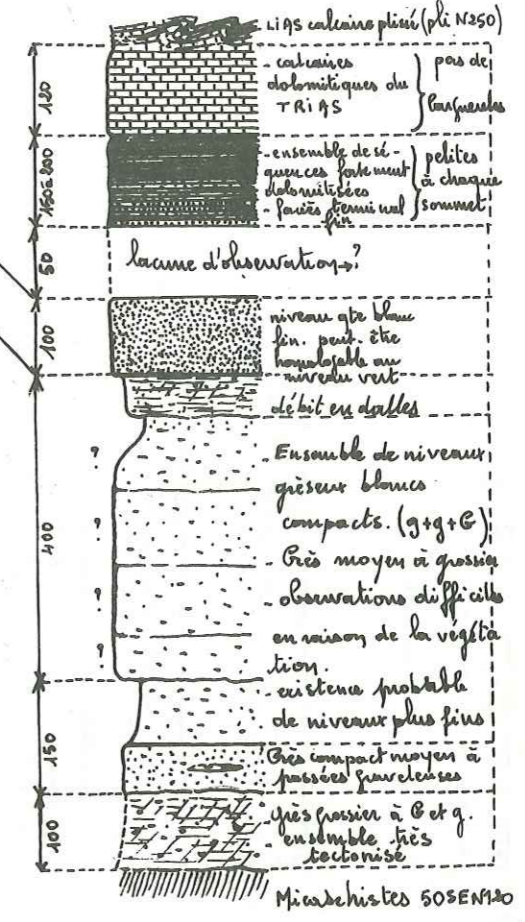 LIAS calcaire plissé (pli N250)
120
- calcaires
dolomitiques du
TRIAS
pas de
150 à 200
- ensemble de sé-
quences fortement
dolomitisées
- faciès terminal
fin
pelites
à chaque
sommet
50
lacune d'observation →?
100
niveau qte blanc
fin. peut-être
homologable au
niveau vert
débit en dalles
400
?
?
?
- Ensemble de niveaux
gréseux blancs
compacts. (g+g+G)
- Grès moyen à grossier
- observations difficiles
en raison de la végéta
tion.
- existence probable
de niveaux plus fins
150
Grès compact moyen à
passées graveleuses
100
- grès grossier à G et g.
- ensemble très
tectonisé
Micaschistes 50SEN120